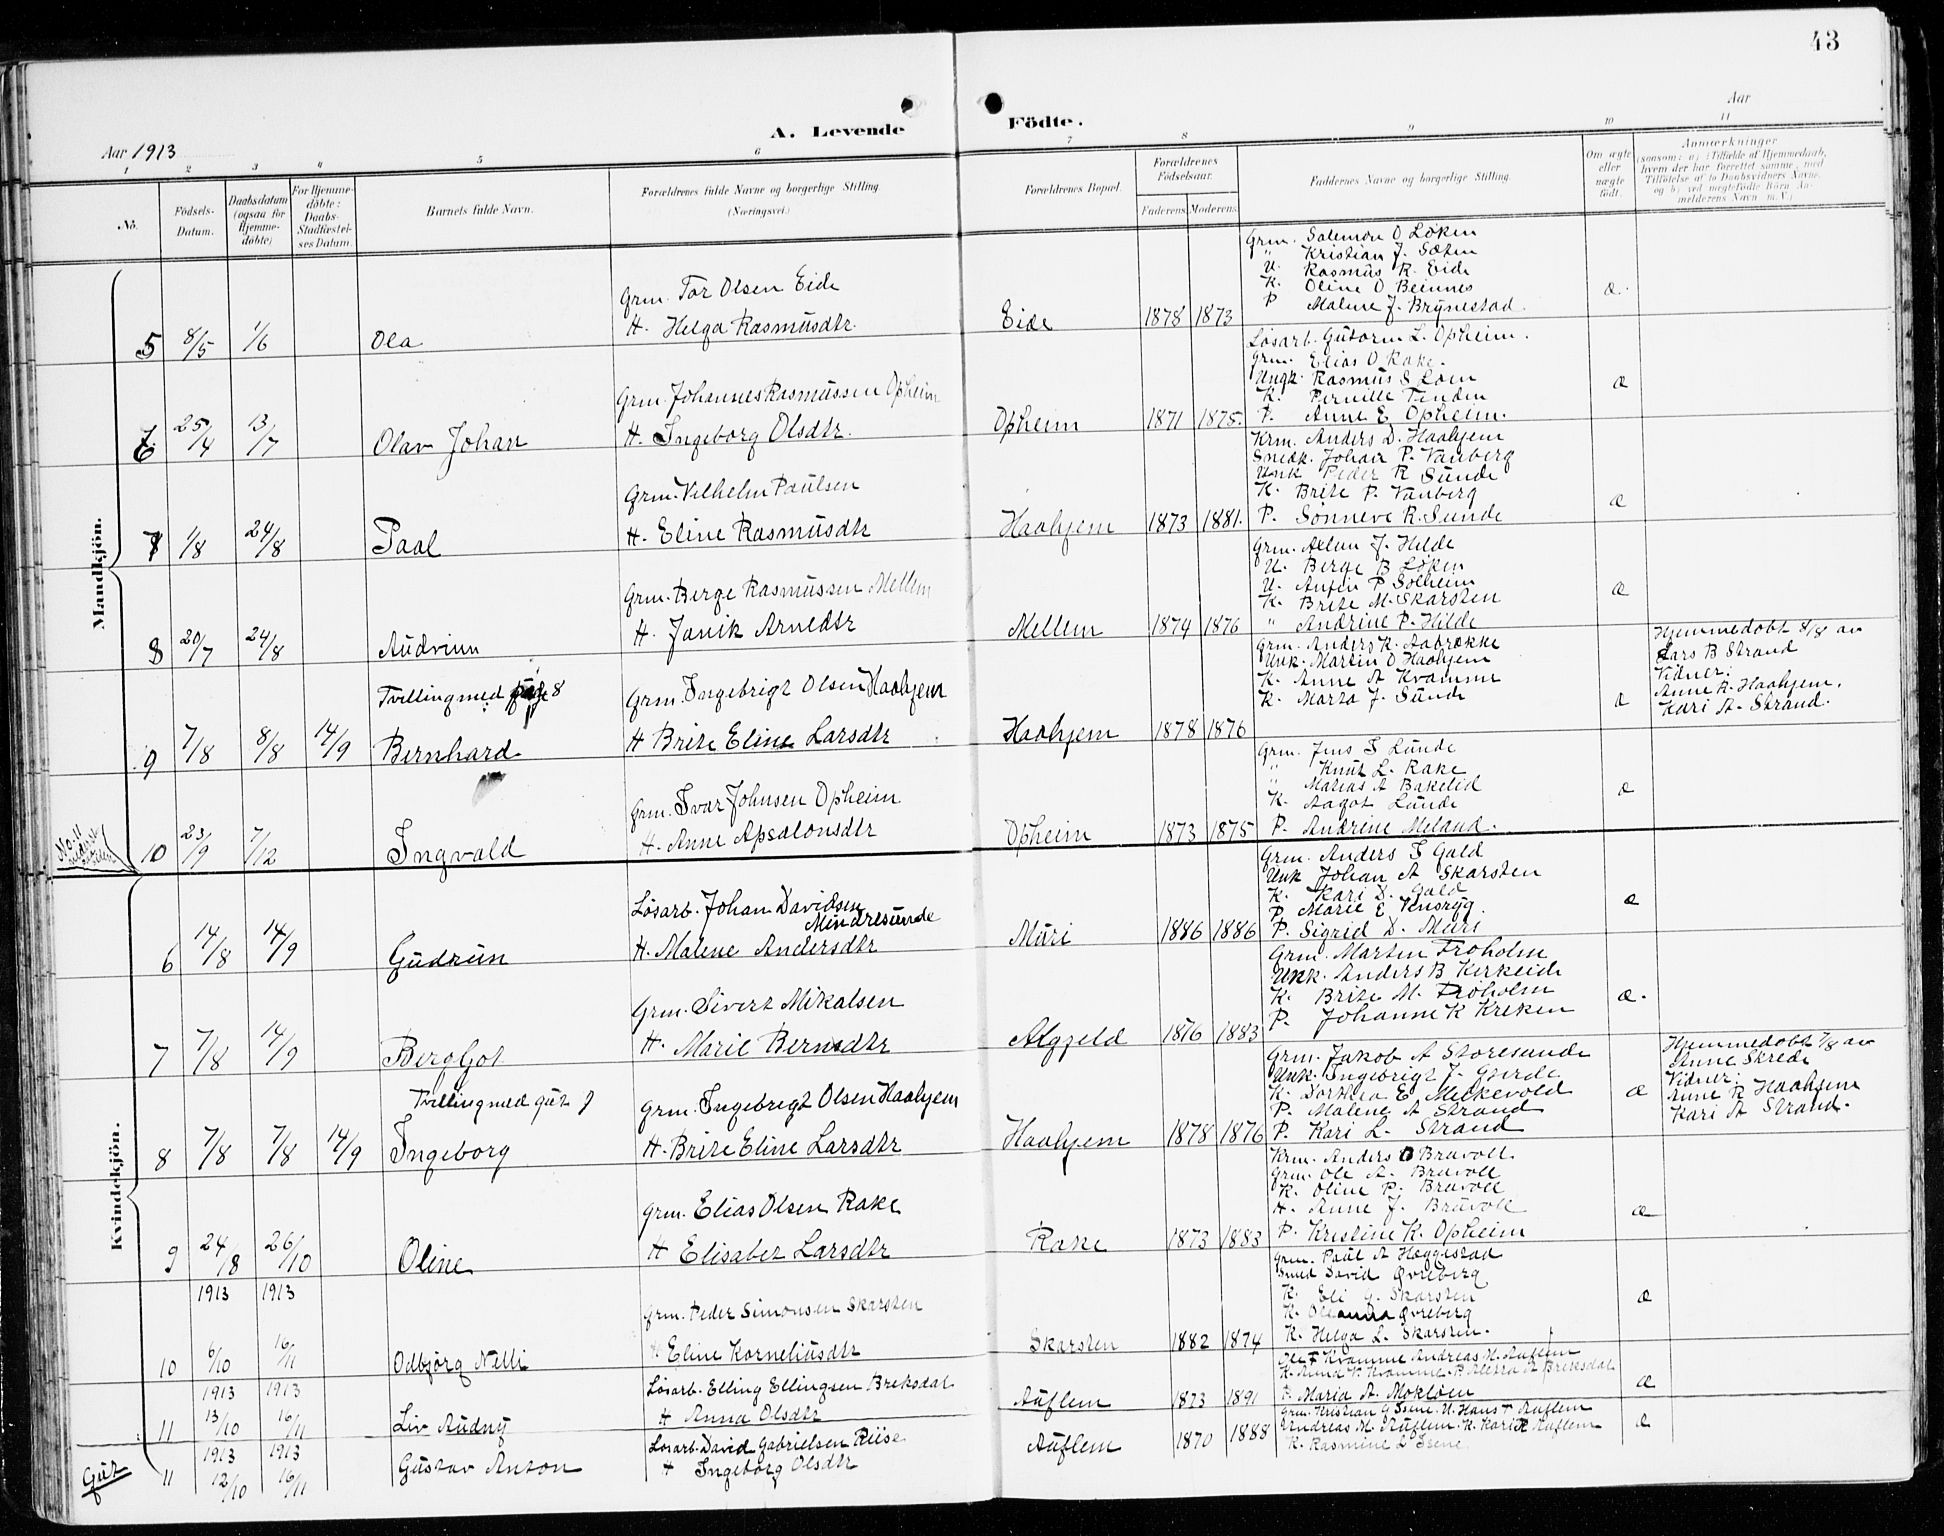 43
A. Levende Födte.
Aar 1913
Aar
1 2 3 4 5 6 7 8 9 10 11
No.
Födsels-Datum.
Daabsdatum (ogsaa for Hjemmedöbte)
For Hjemmedöbte: Daabs-Stadfæstelses Datum.
Barnets fulde Navn.
Forældrenes fulde Navne og borgerlige Stilling. (Næringsvei.)
Forældrenes Bopæl.
Forældrenes Födselsaar.
Faderens. Moderens.
Faddernes Navne og borgerlige Stilling.
Om ægte eller uægte født.
Anmærkninger
(saasom: a) i Tilfælde af Hjemmedaab, hvem der har forrettet samme, med Tilföielse af to Daabsvidners Navne, og b) ved uægtefödte Börn Anmelderens Navn m.V.)
Mandkjön.
5 8/5 1/6 Ola
Grm. Tor Olsen Eide
H. Helga Rasmusdtr.
Eide 1878 1873
Grm. Salemon O Løken
" Kristian J. Sæten
U. Rasmus R. Eide
K. Oline O Beinnes
P Malene J. Brynestad.
æ.
6 25/4 13/7 Olav Johan
Grm. Johannes Rasmussen Opheim
H. Ingeborg Olsdtr.
Opheim 1871 1875.
Løsarb. Gutorm L. Opheim.
Grm. Elias O Rake.
Ungk. Rasmus S Loen
K. Pernille Tenden
P. Anne E Opheim.
æ
7 1/8 24/8 Paal
Grm. Vilhelm Paulsen
H. Eline Rasmusdtr
Haahjem 1873 1881.
Krm. Anders D. Haahjem
Snedk. Johan P. Vanberg
Unk Peder R Sunde
K. Brite P. Vanberg
P. Sønneve R. Sunde
æ
8 20/7 24/8 Audvinn
Grm. Berge Rasmussen Mellem
H. Janik Arnedtr
Mellem 1874 1876
Grm. J. Hilde
U. Berge B Løken
U. Anten P Solheim
K. Brite M. Skarsten
" Andrine P. Hilde
æ
Tvilling med pige 8
9 7/8 8/8 14/9 Bernhard
Grm. Ingebrigt Olsen Haahjem
H Brite Eline Larsdtr
Haahjem 1878 1876
Grm. Anders K. Aabrekke
Unk. Martin O Haahjem
K. Anne A Kvamme
K. Marta J. Sunde
æ
Hjemmedøbt 8/8 av
Lars B Strand
Vidner:
Anne R. Haahjem.
Kari A. Strand.
10 23/9 7/12 Ingvald
Grm. Ivar Johnsen Opheim
H. Anne Apsalonsdtr
Opheim 1873 1875
Grm. Jens I Lunde
" Knut L. Rake
" Matias A Bakelid
K. Aagot Lunde
P. Andrine Meland.
æ
No. 11 nederst
Kvindekjön.
6 14/8 14/9 Gudrun
Løsarb. Johan Davidsen
Mindresunde
H. Malene Andersdtr
Muri 1886 1886
Grm. Anders I Gald
Unk Johan A Skarsten
K. Kari D. Gald
P. Marie E
P. Sigrid D. Muri
æ
7 7/8 14/9 Bergljot
Grm. Sivert Mikalsen
H. Marie Berndtr
Algjeld 1876 1883
Grm. Marten Froholm
Unk. Anders B Kirkeide
K. Brite M. Froholm
P. Johanne K Kreken
æ.
Tvilling med gut 9
8 7/8 7/8 14/9 Ingeborg
Grm. Ingebrigt Olsen Haahjem
H. Brite Eline Larsdtr
Haahjem 1878 1876
Grm. Jakob A Storesunde
Unk. Ingebrigt J. Gjerde
K. Dorthea E Melkevold
P. Malene A Strand
P. Kari L. Strand
æ
Hjemmedøbt 7/8 av
Anne Skrede
Vidner:
Anne R Haahjem
Kari A Strand.
9 24/8 26/10 Oline
Grm. Elias Olsen Rake
H Elisabet Larsdtr
Rake 1873 1883
Krm. Anders O Bruvoll
Grm. Ole A. Bruvoll
K. Oline P. Bruvoll
H. Anne J. Bruvoll
P. Kristine K. Opheim
æ
1913 1913
10 6/10 16/11 Odbjørg Nelli
Grm. Peder Simonsen Skarsten
H Eline Korneliusdtr
Skarsten 1882 1874
Grm. Paul A Heggestad
Smed David Øvreberg
K. Eli G. Skarsten
K. Oleanna Øvreberg
K. Helga L. Skarsten.
æ
1913 1913
11 13/10 16/11 Liv Audny
Løsarb. Elling Ellingsen Breksdal
H Anna Olsdtr
Auflem 1873 1891
Ole T Kvamme Andreas M. Auflem
K. Anna K. Kvamme. P. A Briksdal
P. Maria A. Mokleim
æ
Gut
1913 1913
11 12/10 16/11 Gustav Anton
Løsarb. David Gabrielsen Riise
H Ingeborg Olsdtr
Auflem 1870 1888
Grm. Kristian G Isene. U. Hans Auflem
Andreas M. Auflem. K. Kari R Auflem
K. Rasmine L Isene.
æ